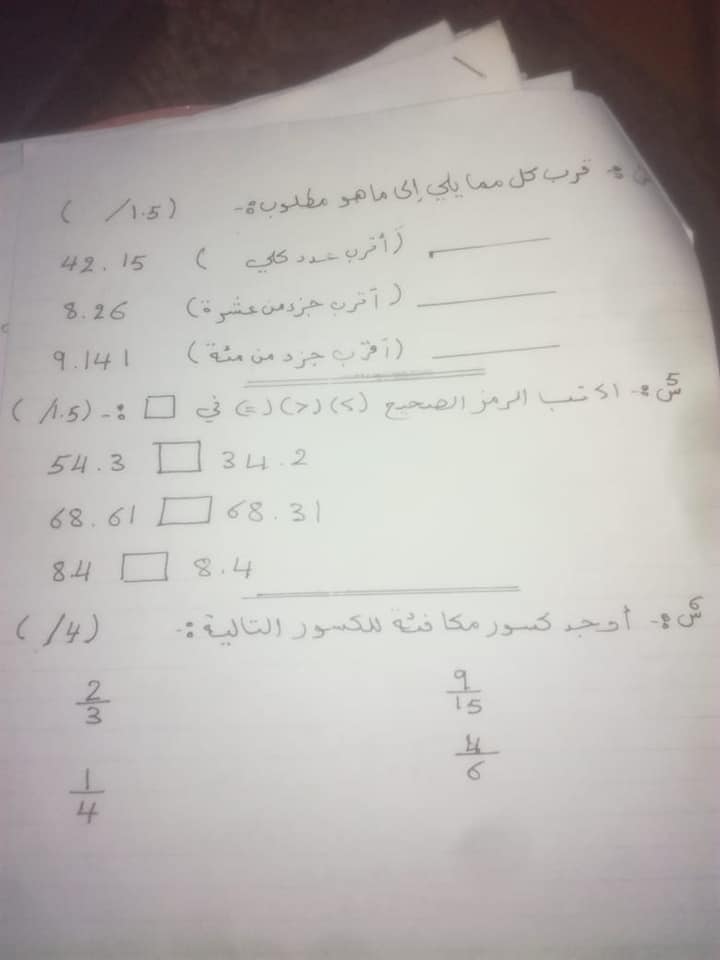 س :- قرب كل مما يلي إلى ما هو مطلوب :- ( /1.5)
42.15 (أقرب عدد كلي)
8.26 (أقرب جزء من عشرة)
9.141 (أقرب جزء من مئة)
س5 :- اكتب الرمز الصحيح (>) (<) (=) في □ :- ( /1.5)
54.3 □ 34.2
68.61 □ 68.31
8.4 □ 8.4
س6 :- أوجد كسور مكافئة للكسور التالية :- ( /4)
2/3 9/15
1/4 4/6